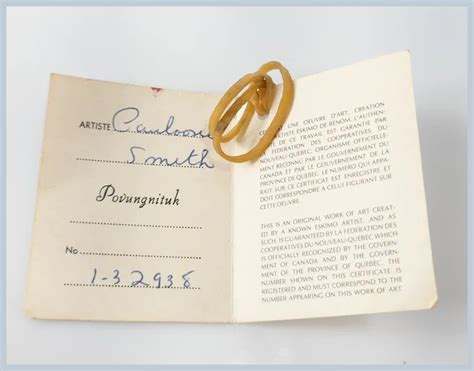 ARTISTE
Smith
Povungnituk
No
1-32938
UNE OEUVRE D'ART, CREATION
ARTISTE ESKIMO DE RENOM. L'AUTHEN-
DE CE TRAVAIL EST GARANTIE PAR
FEDERATION DES COOPERATIVES DU
NOUVEAU-QUEBEC, ORGANISME OFFICIELLE-
MENT RECONNU PAR LE GOUVERNEMENT DU
CANADA ET PAR LE GOUVERNEMENT DE LA
PROVINCE DE QUEBEC. LE NUMERO QUI APPA-
RAIT SUR CE CERTIFICAT EST ENREGISTRE ET
DOIT CORRESPONDRE A CELUI FIGURANT SUR
CETTE OEUVRE.
THIS IS AN ORIGINAL WORK OF ART CREAT-
ED BY A KNOWN ESKIMO ARTIST, AND AS
SUCH, IS GUARANTEED BY LA FEDERATION DES
COOPERATIVES DU NOUVEAU-QUEBEC WHICH
IS OFFICIALLY RECOGNIZED BY THE GOVERN-
MENT OF CANADA AND BY THE GOVERNMENT
OF THE PROVINCE OF QUEBEC. THE NUMBER
SHOWN ON THIS CERTIFICATE IS
REGISTERED AND MUST CORRESPOND TO THE
NUMBER APPEARING ON THIS WORK OF ART